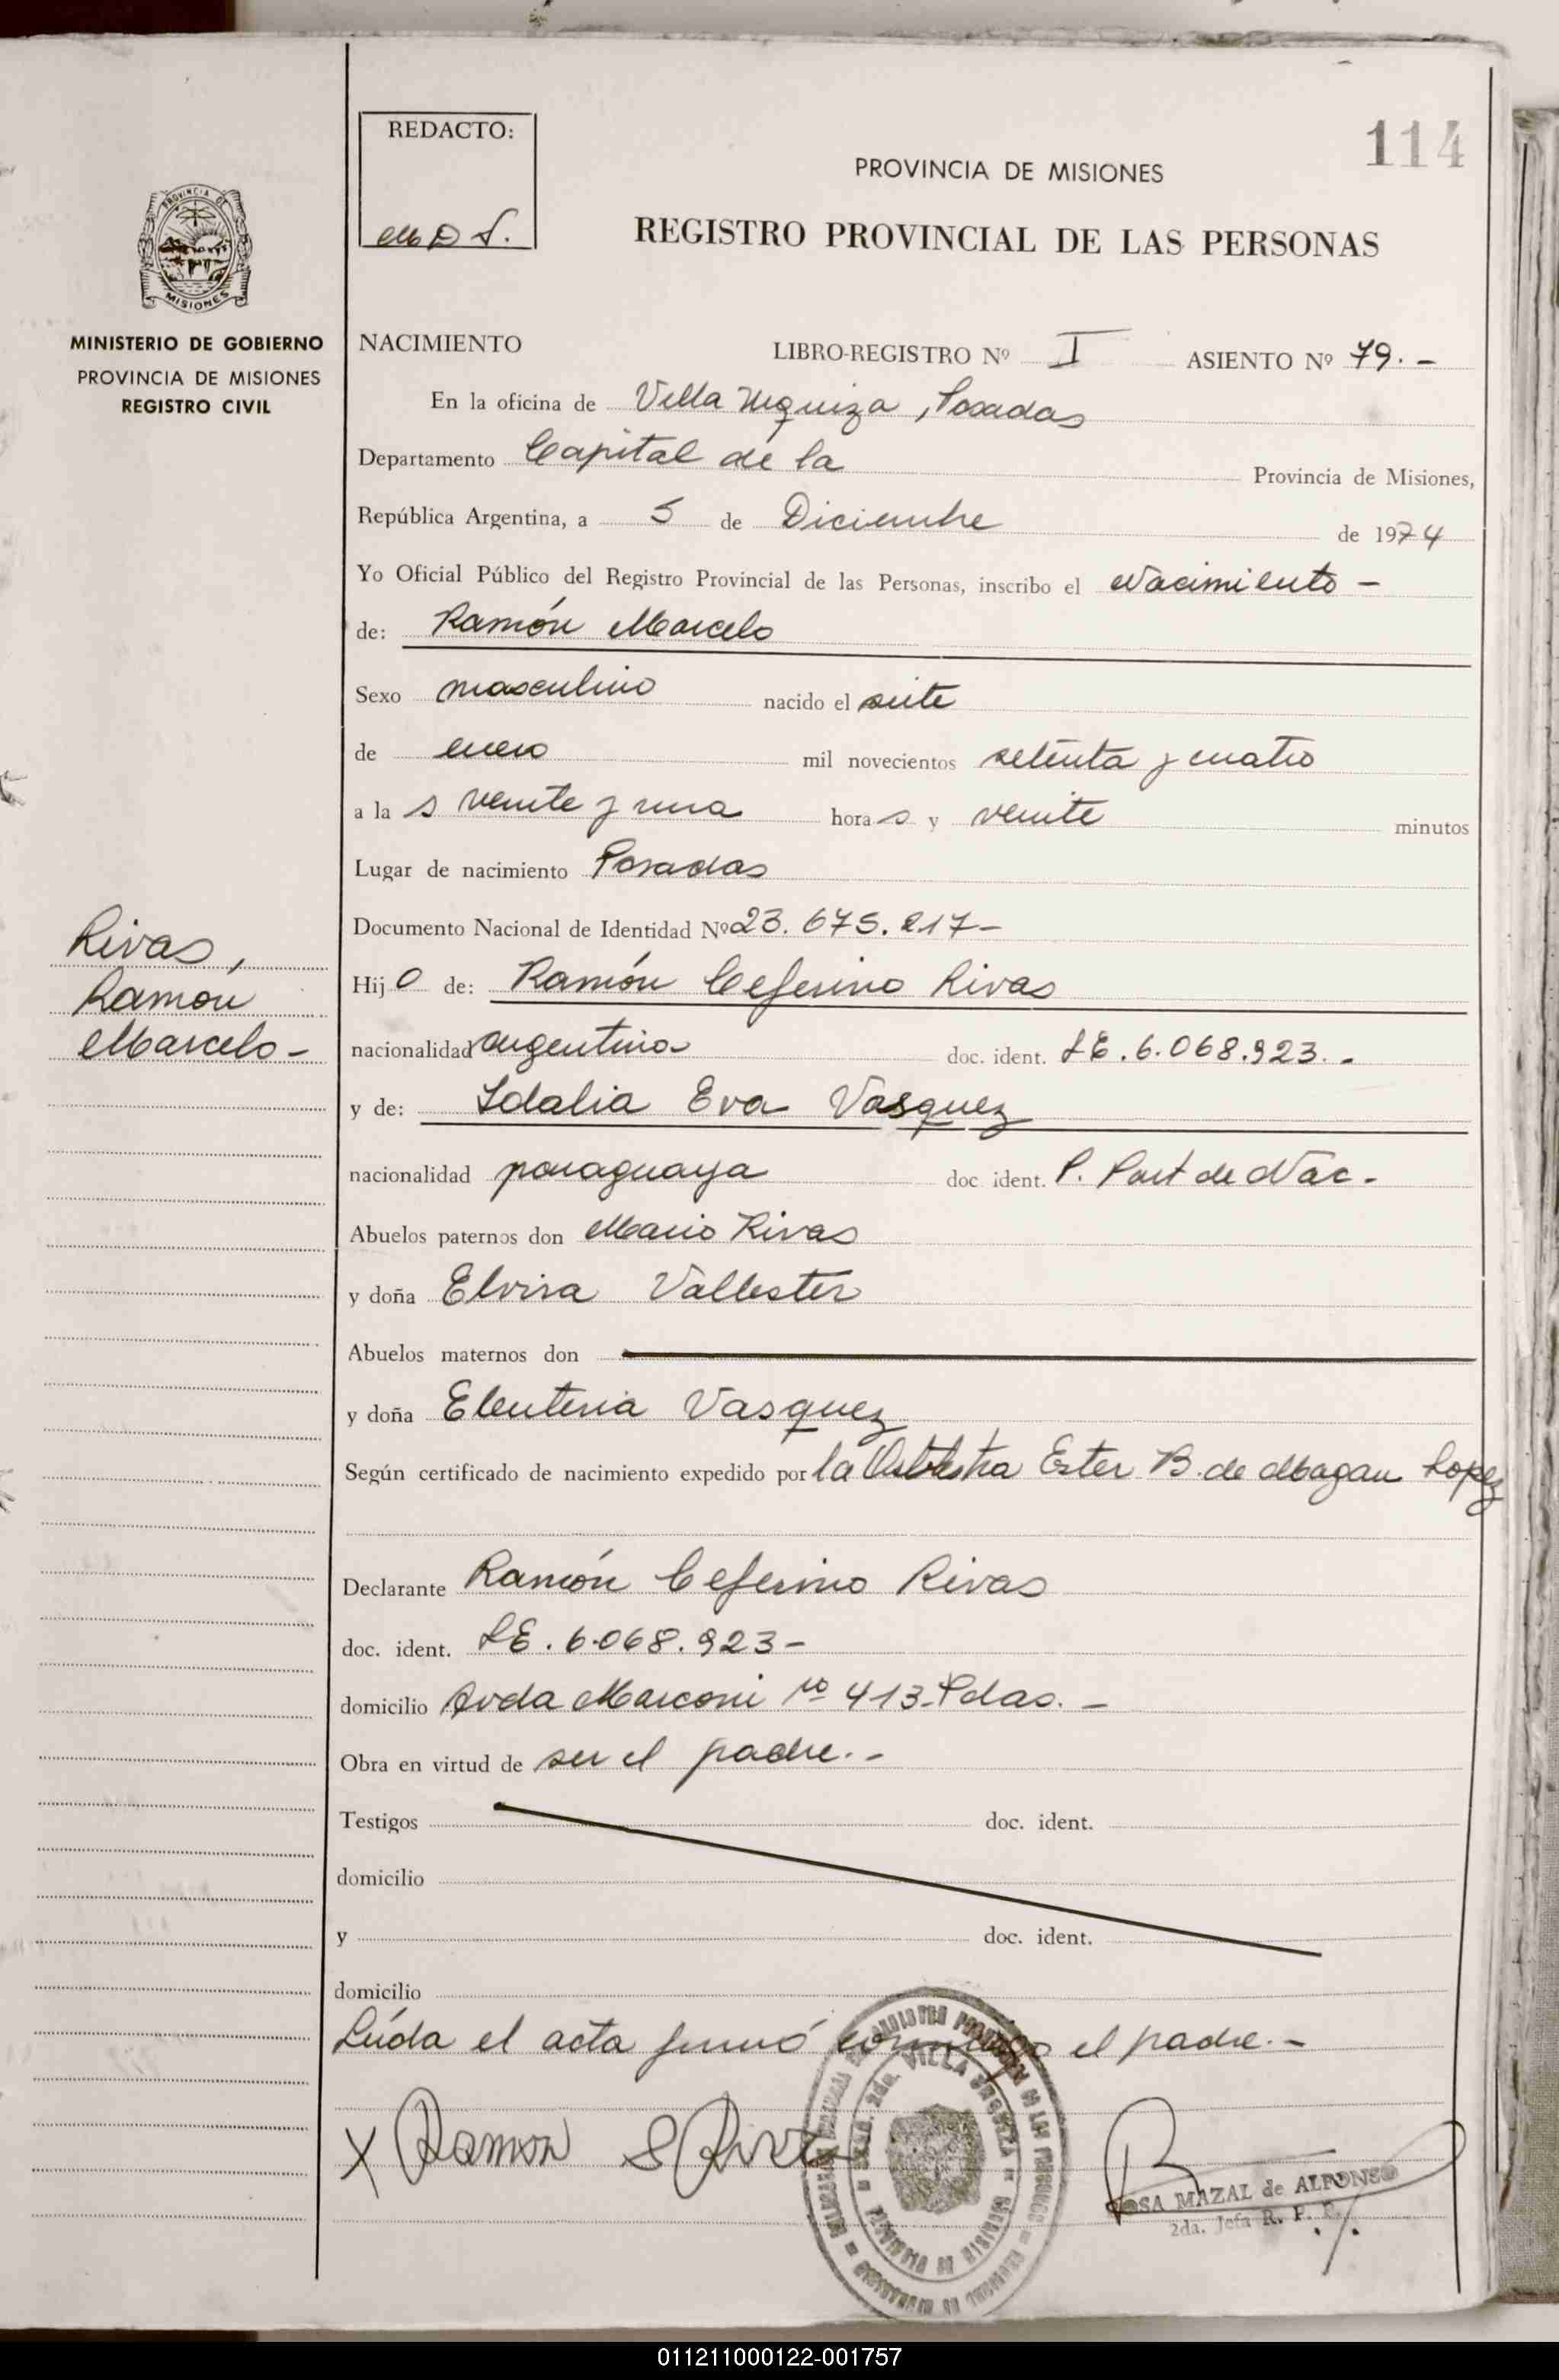 REDACTO:
114
PROVINCIA DE MISIONES
MDS.
REGISTRO PROVINCIAL DE LAS PERSONAS
PROVINCIA DE
MISIONES
MINISTERIO DE GOBIERNO
PROVINCIA DE MISIONES
REGISTRO CIVIL
NACIMIENTO LIBRO-REGISTRO Nº I ASIENTO Nº 79.-
En la oficina de Villa Urquiza, Posadas
Departamento Capital de la Provincia de Misiones,
República Argentina, a 5 de Diciembre de 1974
Yo Oficial Público del Registro Provincial de las Personas, inscribo el Nacimiento -
de: Ramón Marcelo
Sexo masculino nacido el siete
de enero mil novecientos setenta y cuatro
a la s veinte y una hora s y veinte minutos
Lugar de nacimiento Posadas
Documento Nacional de Identidad Nº 23.675.217-
Rivas,
Ramón
Marcelo-
Hij o de: Ramón Ceferino Rivas
nacionalidad argentino doc. ident. LE.6.068.923.-
y de: Idalia Eva Vasquez
nacionalidad paraguaya doc. ident. P. Part de Nac.
Abuelos paternos don Mario Rivas
y doña Elvira Vallester
Abuelos maternos don
y doña Eleuteria Vasquez
Según certificado de nacimiento expedido por la Ester B. de Magan Lopez
Declarante Ramón Ceferino Rivas
doc. ident. LE.6.068.923-
domicilio Avda Marconi Nº 413-Pdas.-
Obra en virtud de ser el padre.-
Testigos doc. ident.
domicilio
y doc. ident.
domicilio
Leída el acta firmó conmigo el padre.-
X Ramon S Rivas
VILLA URQUIZA
PROVINCIA DE MISIONES
ROSA MAZAL de ALFONSO
2da. Jefa R. P. P.
011211000122-001757